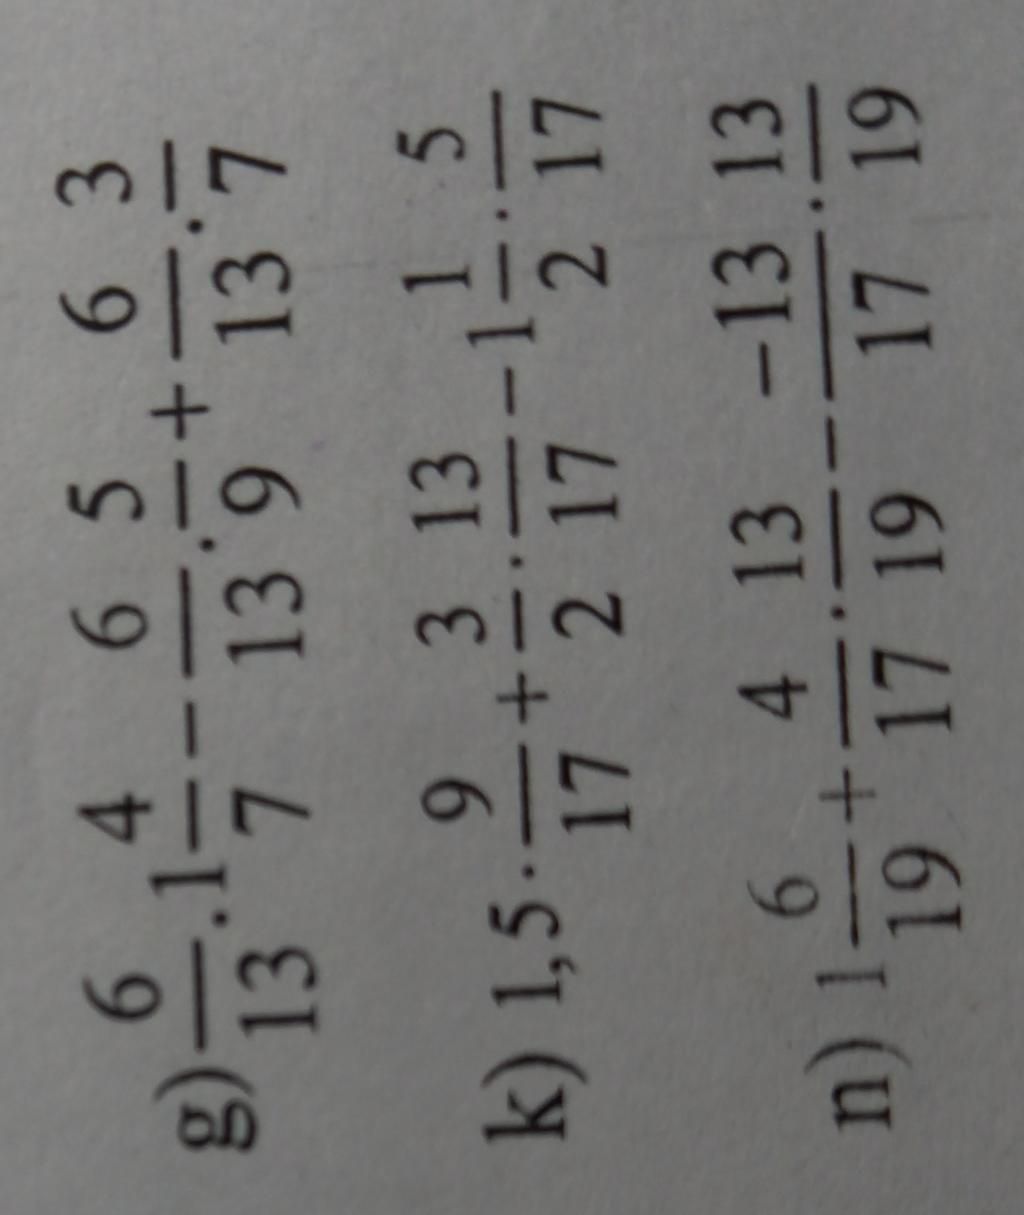 g) 6/13 . 1 4/7 − 6/13 . 5/9 + 6/13 . 3/7
k) 1,5 . 9/17 + 3/2 . 13/17 − 1 1/2 . 5/17
n) 1 6/19 + 4/17 . 13/19 − −13/17 . 13/19